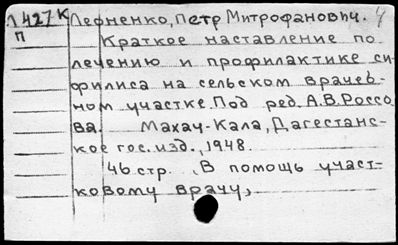 Л 427к Леоненко, Петр Митрофанович. 4
П
Краткое наставление по
лечению и профилактике си-
филиса на сельском врачеб-
ном участке. Под ред. А.В. Россо
ва. Махач-Кала, Дагестанс-
кое гос. изд., 1948.
46 стр. (В помощь участ-
ковому врачу)